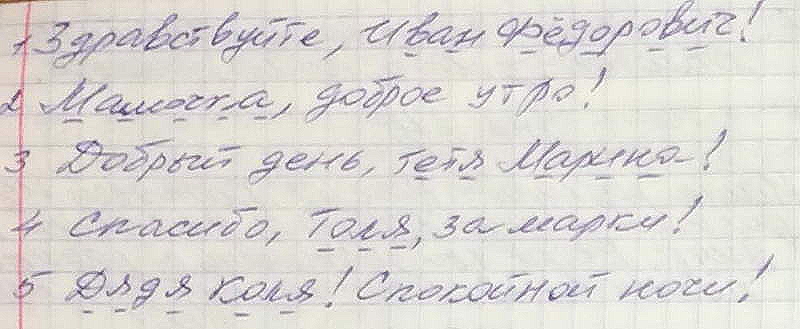 1 Здравствуйте, Иван Фёдорович!
2 Мамочка, доброе утро!
3 Добрый день, тётя Марина!
4 Спасибо, Толя, за марки!
5 Дядя Коля! Спокойной ночи!